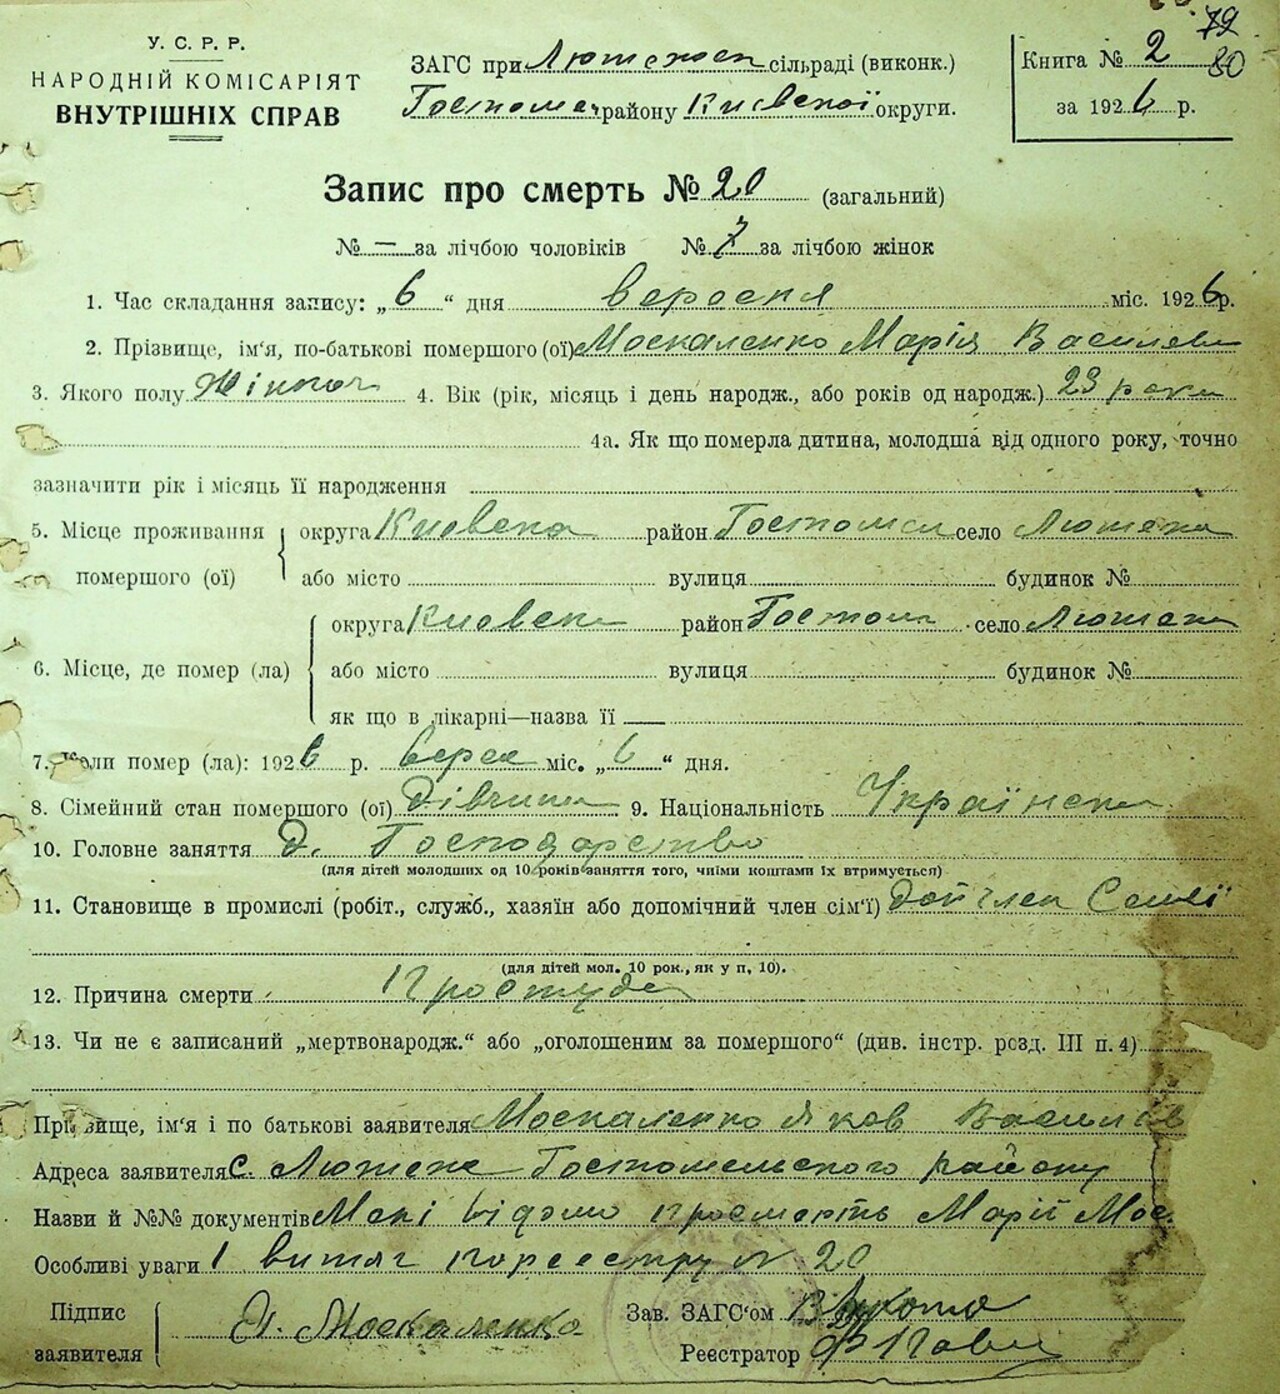 79
80
У. С. Р. Р.
НАРОДНІЙ КОМІСАРІЯТ
ВНУТРІШНІХ СПРАВ
ЗАГС при Лютежск сільраді (виконк.)
Гостомел району Київської округи.
Книга № 2
за 1926 р.
Запис про смерть № 20 (загальний)
№ — за лічбою чоловіків № 7 за лічбою жінок
1. Час складання запису: „6“ дня вересня міс. 1926 р.
2. Прізвище, ім‘я, по-батькові помершого (ої) Москаленко Марія Василівн
3. Якого полу Жіноч 4. Вік (рік, місяць і день народж., або років од народж.) 23 роки
4а. Як що померла дитина, молодша від одного року, точно
зазначити рік і місяць її народження
5. Місце проживання помершого (ої) округа Киевска район Гостомел село Лютеж
або місто вулиця будинок №
6. Місце, де помер (ла) округа Киевск район Гостом село Лютеж
або місто вулиця будинок №
як що в лікарні—назва її —
7. Коли помер (ла): 1926 р. верес міс. „6“ дня.
8. Сімейний стан помершого (ої) Дівчина 9. Національність Українска
10. Головне заняття Д. Господарство
(для дітей молодших од 10 років заняття того, чиїми коштами їх втримується)
11. Становище в промислі (робіт., служб., хазяїн або допомічний член сім‘ї) Доп член Семї
(для дітей мол. 10 рок., як у п, 10).
12. Причина смерти Простуда
13. Чи не є записаний „мертвонародж.“ або „оголошеним за помершого“ (див. інстр. розд. III п. 4)
Прізвище, ім‘я і по батькові заявителя Москаленко Яков Василів
Адреса заявителя с. Лютеж Гостомельского району
Назви й №№ документів Мені відомо про смерть Марії Мос.
Особливі уваги 1 витяг по реестру № 20
Підпис заявителя Я. Москаленко
Зав. ЗАГС‘ом
Реєстратор